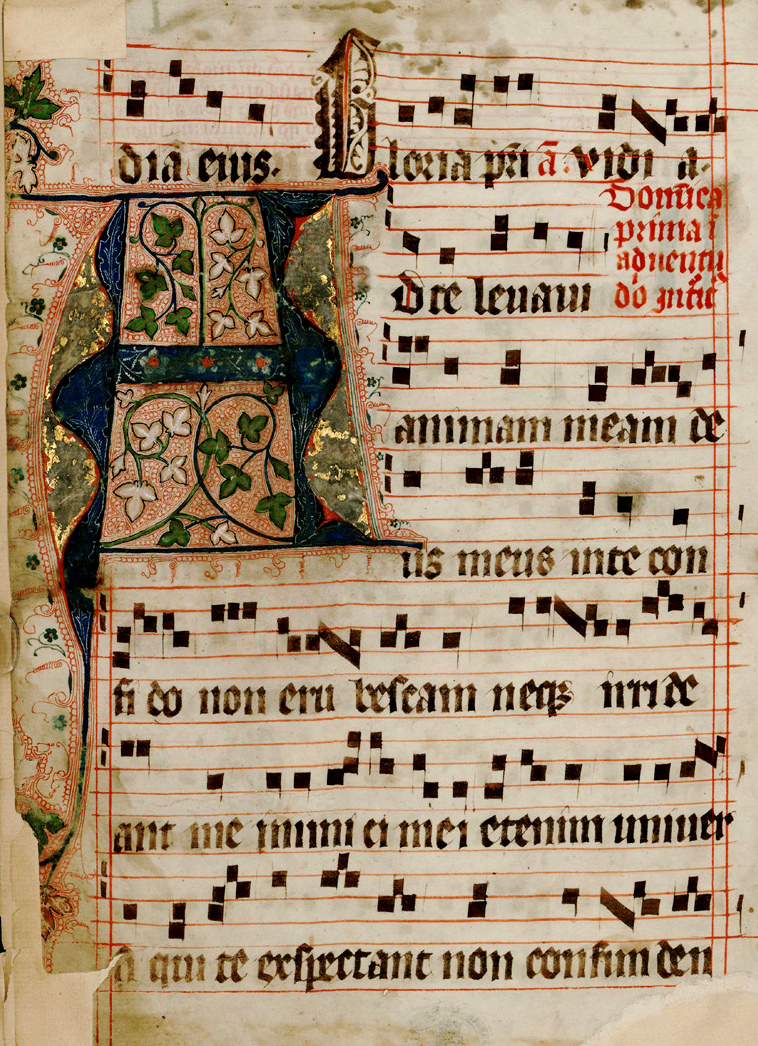 dia eius. Gloria pri ā. vidi a.
Domīca
prima ī
aduentu
do introitꝰ
Ad te leuaui
animam meam de
us meus in te con
fi do non eru bescam neqꝫ irri de
ant me inimi ci mei etenim uniuer
si qui te exspectant non confun den